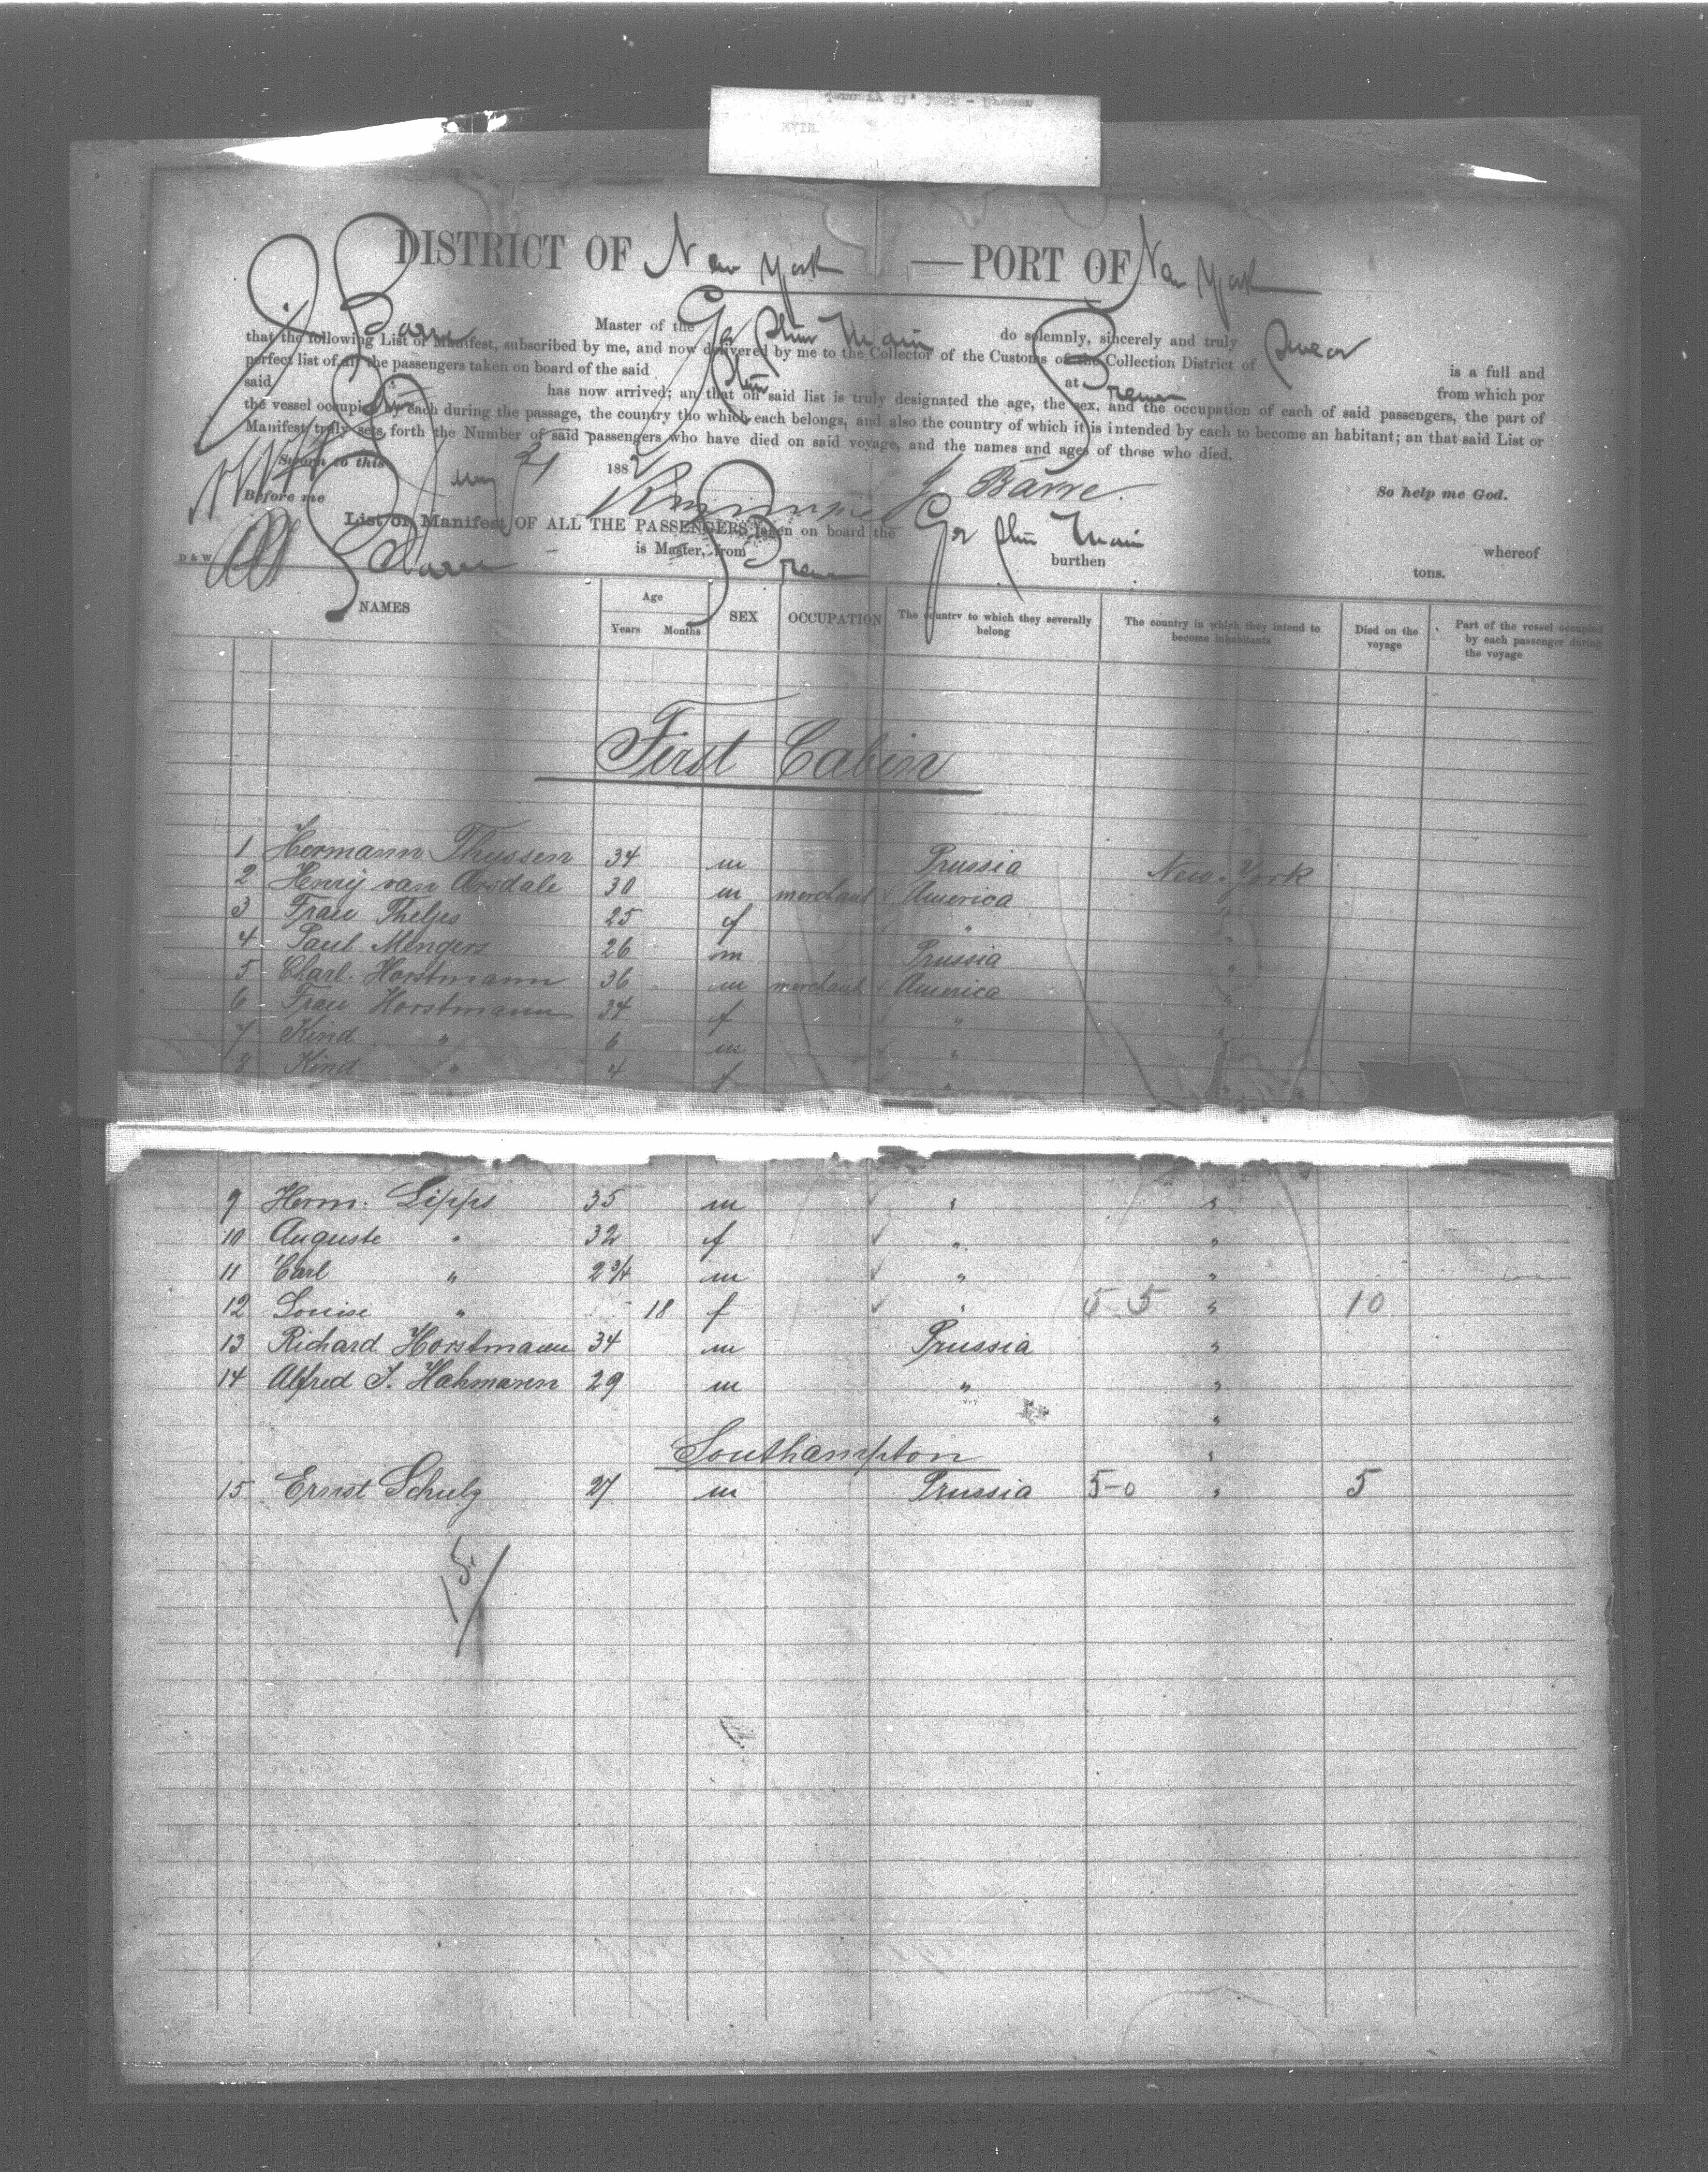 DISTRICT OF New York — PORT OF New York
J Barre Master of the Ger Stmr Main do solemnly, sincerely and truly swear
that the following List or Manifest, subscribed by me, and now delivered by me to the Collector of the Customs of the Collection District of
perfect list of all the passengers taken on board of the said at Bremen is a full and
said has now arrived; an that on said list is truly designated the age, the sex, and the occupation of each of said passengers, the part of from which por
the vessel occupied by each during the passage, the country tho which each belongs, and also the country of which it is intended by each to become an habitant; an that said List or
Manifest truly sets forth the Number of said passengers who have died on said voyage, and the names and ages of those who died.
Sworn to this May 21 1882 J. Barre. So help me God.
Before me
List or Manifest OF ALL THE PASSENGERS taken on board the Ger Stmr Main whereof
D & W. J Barre is Master, from Bremen burthen tons.
NAMES Age Years Months SEX OCCUPATION The country to which they severally belong The country in which they intend to become inhabitants Died on the voyage Part of the vessel occupied by each passenger during the voyage
First Cabin
1 Hermann Thyssen 34 m Prussia New-York
2 Henry van Arsdale 30 m merchant America "
3 Frau Phelps 25 f " "
4 Paul Mengers 26 m Prussia "
5 Charl. Horstmann 36 m merchant America "
6 Frau Horstmann 34 f " "
7 Kind " 6 m " "
8 Kind " 4 f " "
9 Herm. Lipps 35 m " "
10 Auguste " 32 f " "
11 Carl " 2 3/4 m " "
12 Louise " 18 f " 5-5 " 10
13 Richard Horstmann 34 m Prussia "
14 Alfred J. Hahmann 29 m " "
Southampton "
15 Ernst Schulz 27 m Prussia 5-0 " 5
15/